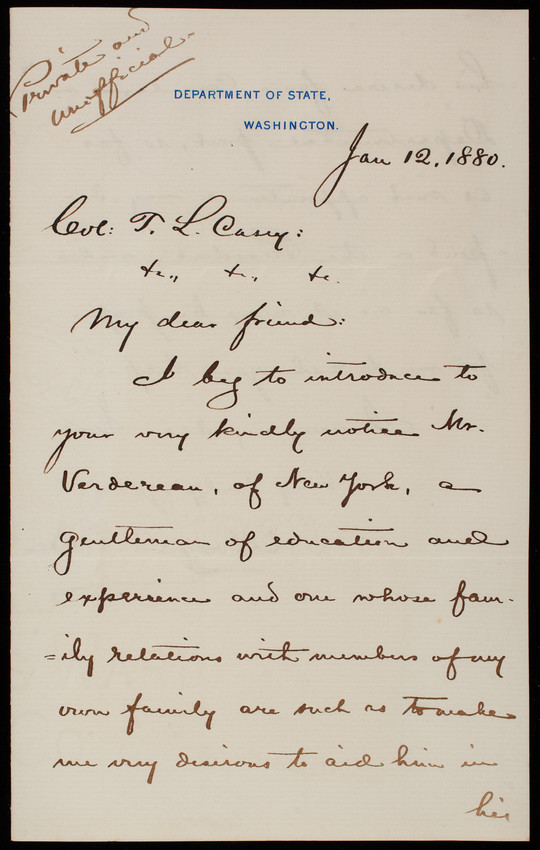 Private and
unofficial.
DEPARTMENT OF STATE,
WASHINGTON.
Jan 12, 1880.
Col: T. L. Casey:
&c., &c., &c.
My dear friend:
I beg to introduce to
your very kindly notice Mr.
Verdereau, of New York, a
gentleman of education and
experience and one whose fam-
=ily relations with members of my
own family are such as to make
me very desirous to aid him in
his